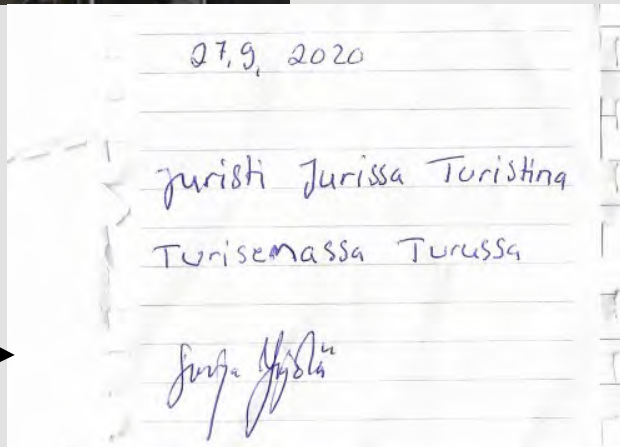 27.9. 2020
juristi Jurissa Turistina
Turisemassa Turussa